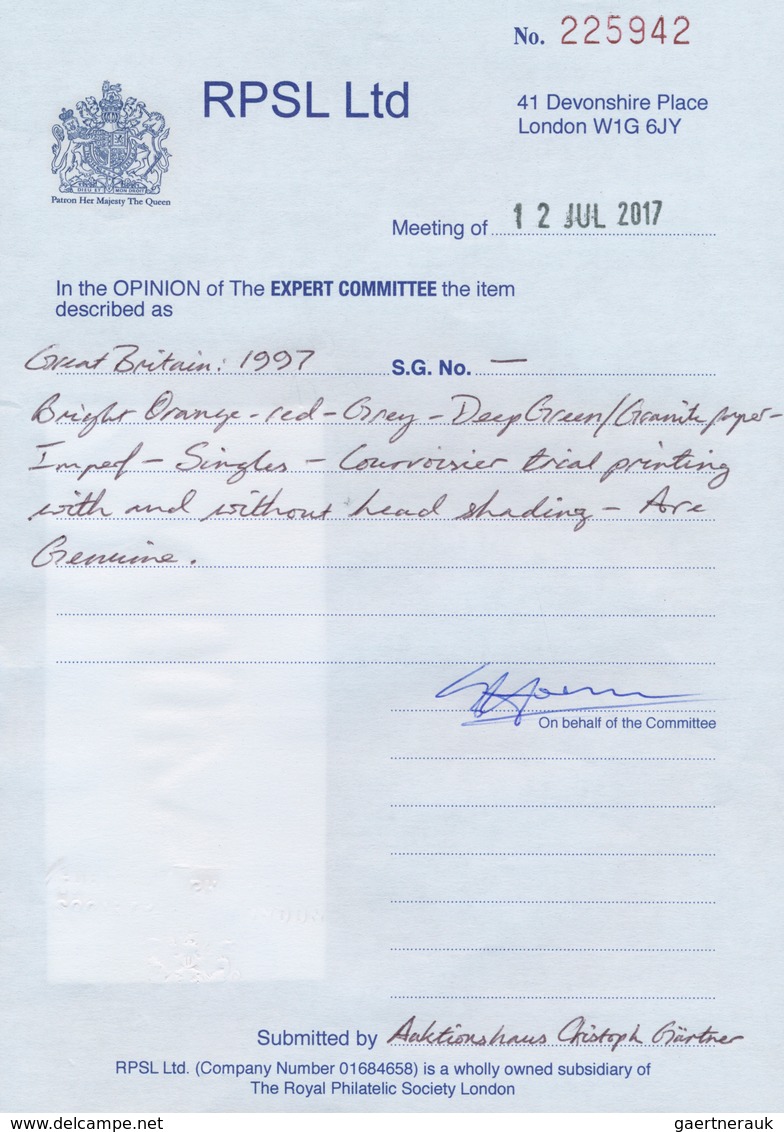 No. 225942
RPSL Ltd
41 Devonshire Place
London W1G 6JY
DIEU ET MON DROIT
Patron Her Majesty The Queen
Meeting of 12 JUL 2017
In the OPINION of The EXPERT COMMITTEE the item
described as
Great Britain: 1997 S.G. No. —
Bright Orange-red-Grey-Deep Green/Granite paper-
Imperf - Singles - Courvoisier trial printing
with and without head shading - Are
Genuine.
On behalf of the Committee
Submitted by Auktionshaus Christoph Gärtner
RPSL Ltd. (Company Number 01684658) is a wholly owned subsidiary of
The Royal Philatelic Society London
www.delcampe.net gaertnerauk